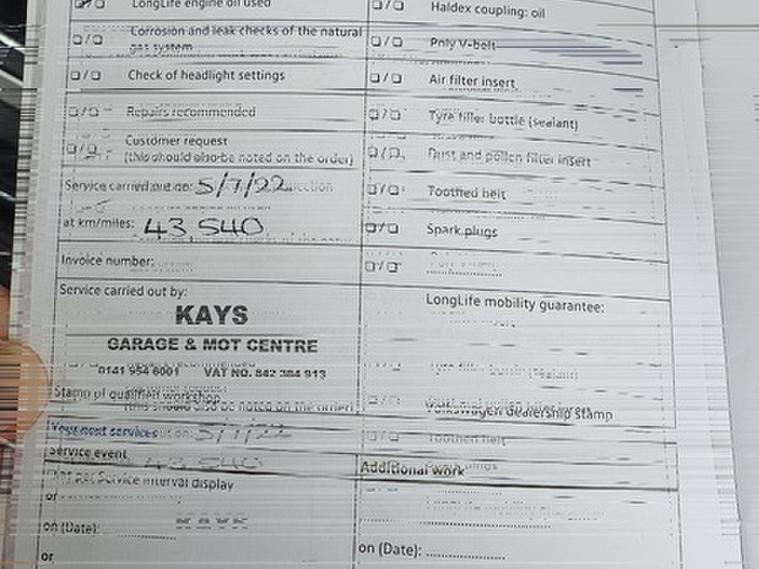 LongLife engine oil used
Haldex coupling: oil
Corrosion and leak checks of the natural
gas system
Poly V-belt
Check of headlight settings
Air filter insert
Repairs recommended
Tyre filler bottle (sealant)
Customer request
(this should also be noted on the order)
Dust and pollen filter insert
Service carried out on: 5/7/22
Toothed belt
at km/miles: 43 540
Spark plugs
Invoice number:
Service carried out by:
LongLife mobility guarantee:
KAYS
GARAGE & MOT CENTRE
0141 954 6001 VAT NO. 842 384 913
Stamp of qualified workshop
Volkswagen dealership stamp
Your next services
Service event
Additional work
per Service interval display
or
on (Date):
on (Date):
or